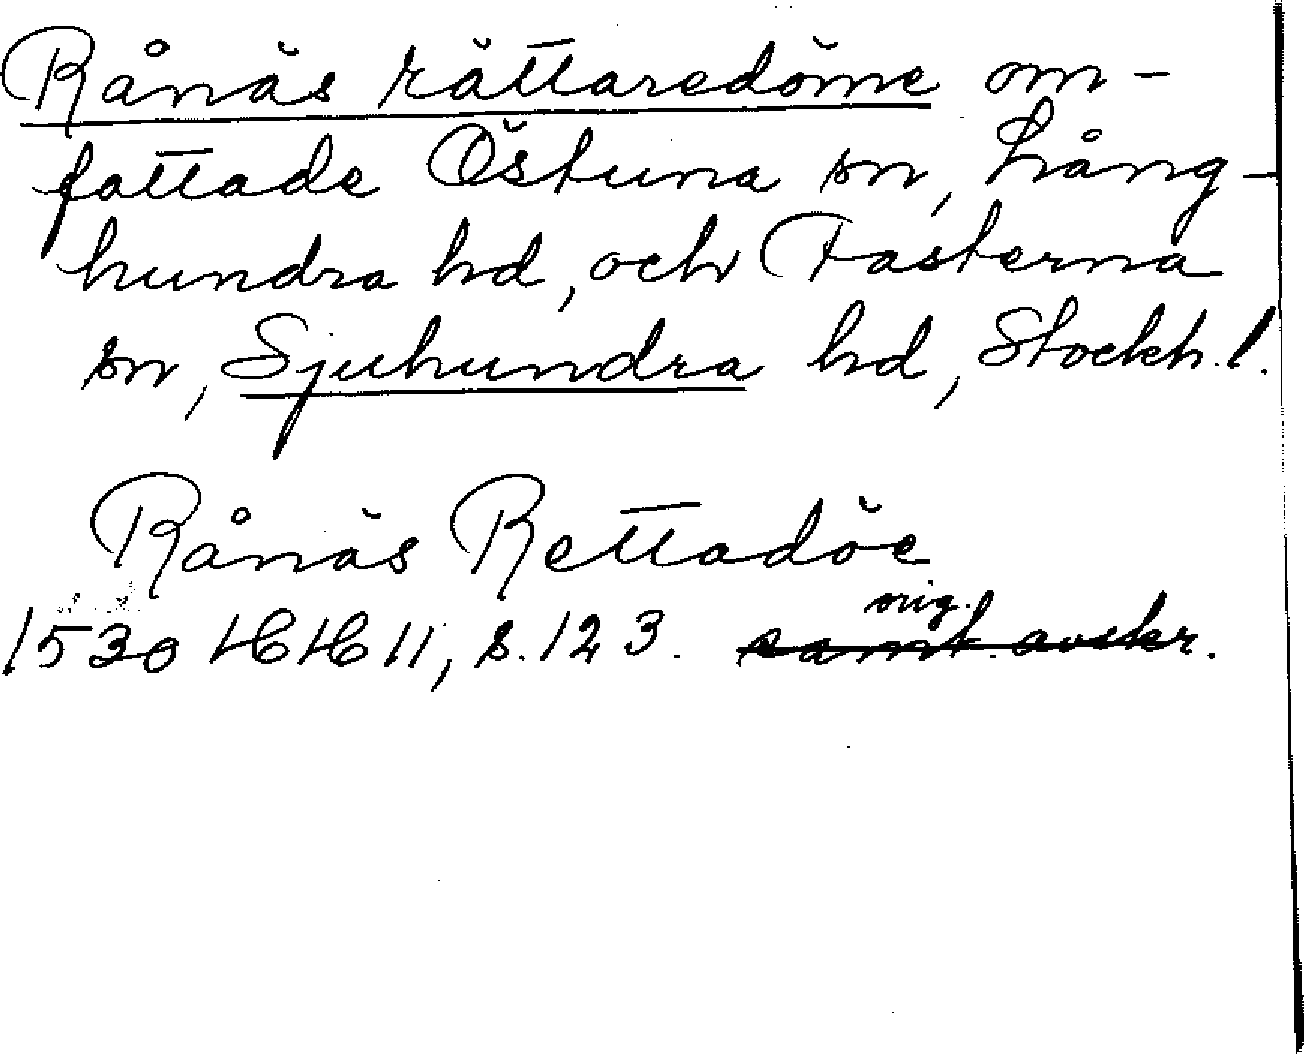 Rånäs rättaredöme om-
fattade Östuna sn, Lång-
hundra hd, och Fasterna
sn, Sjuhundra hd, Stockh. l.
Rånäs Rettadöe
orig.
1530 HH 11, s. 123. samt. avskr.